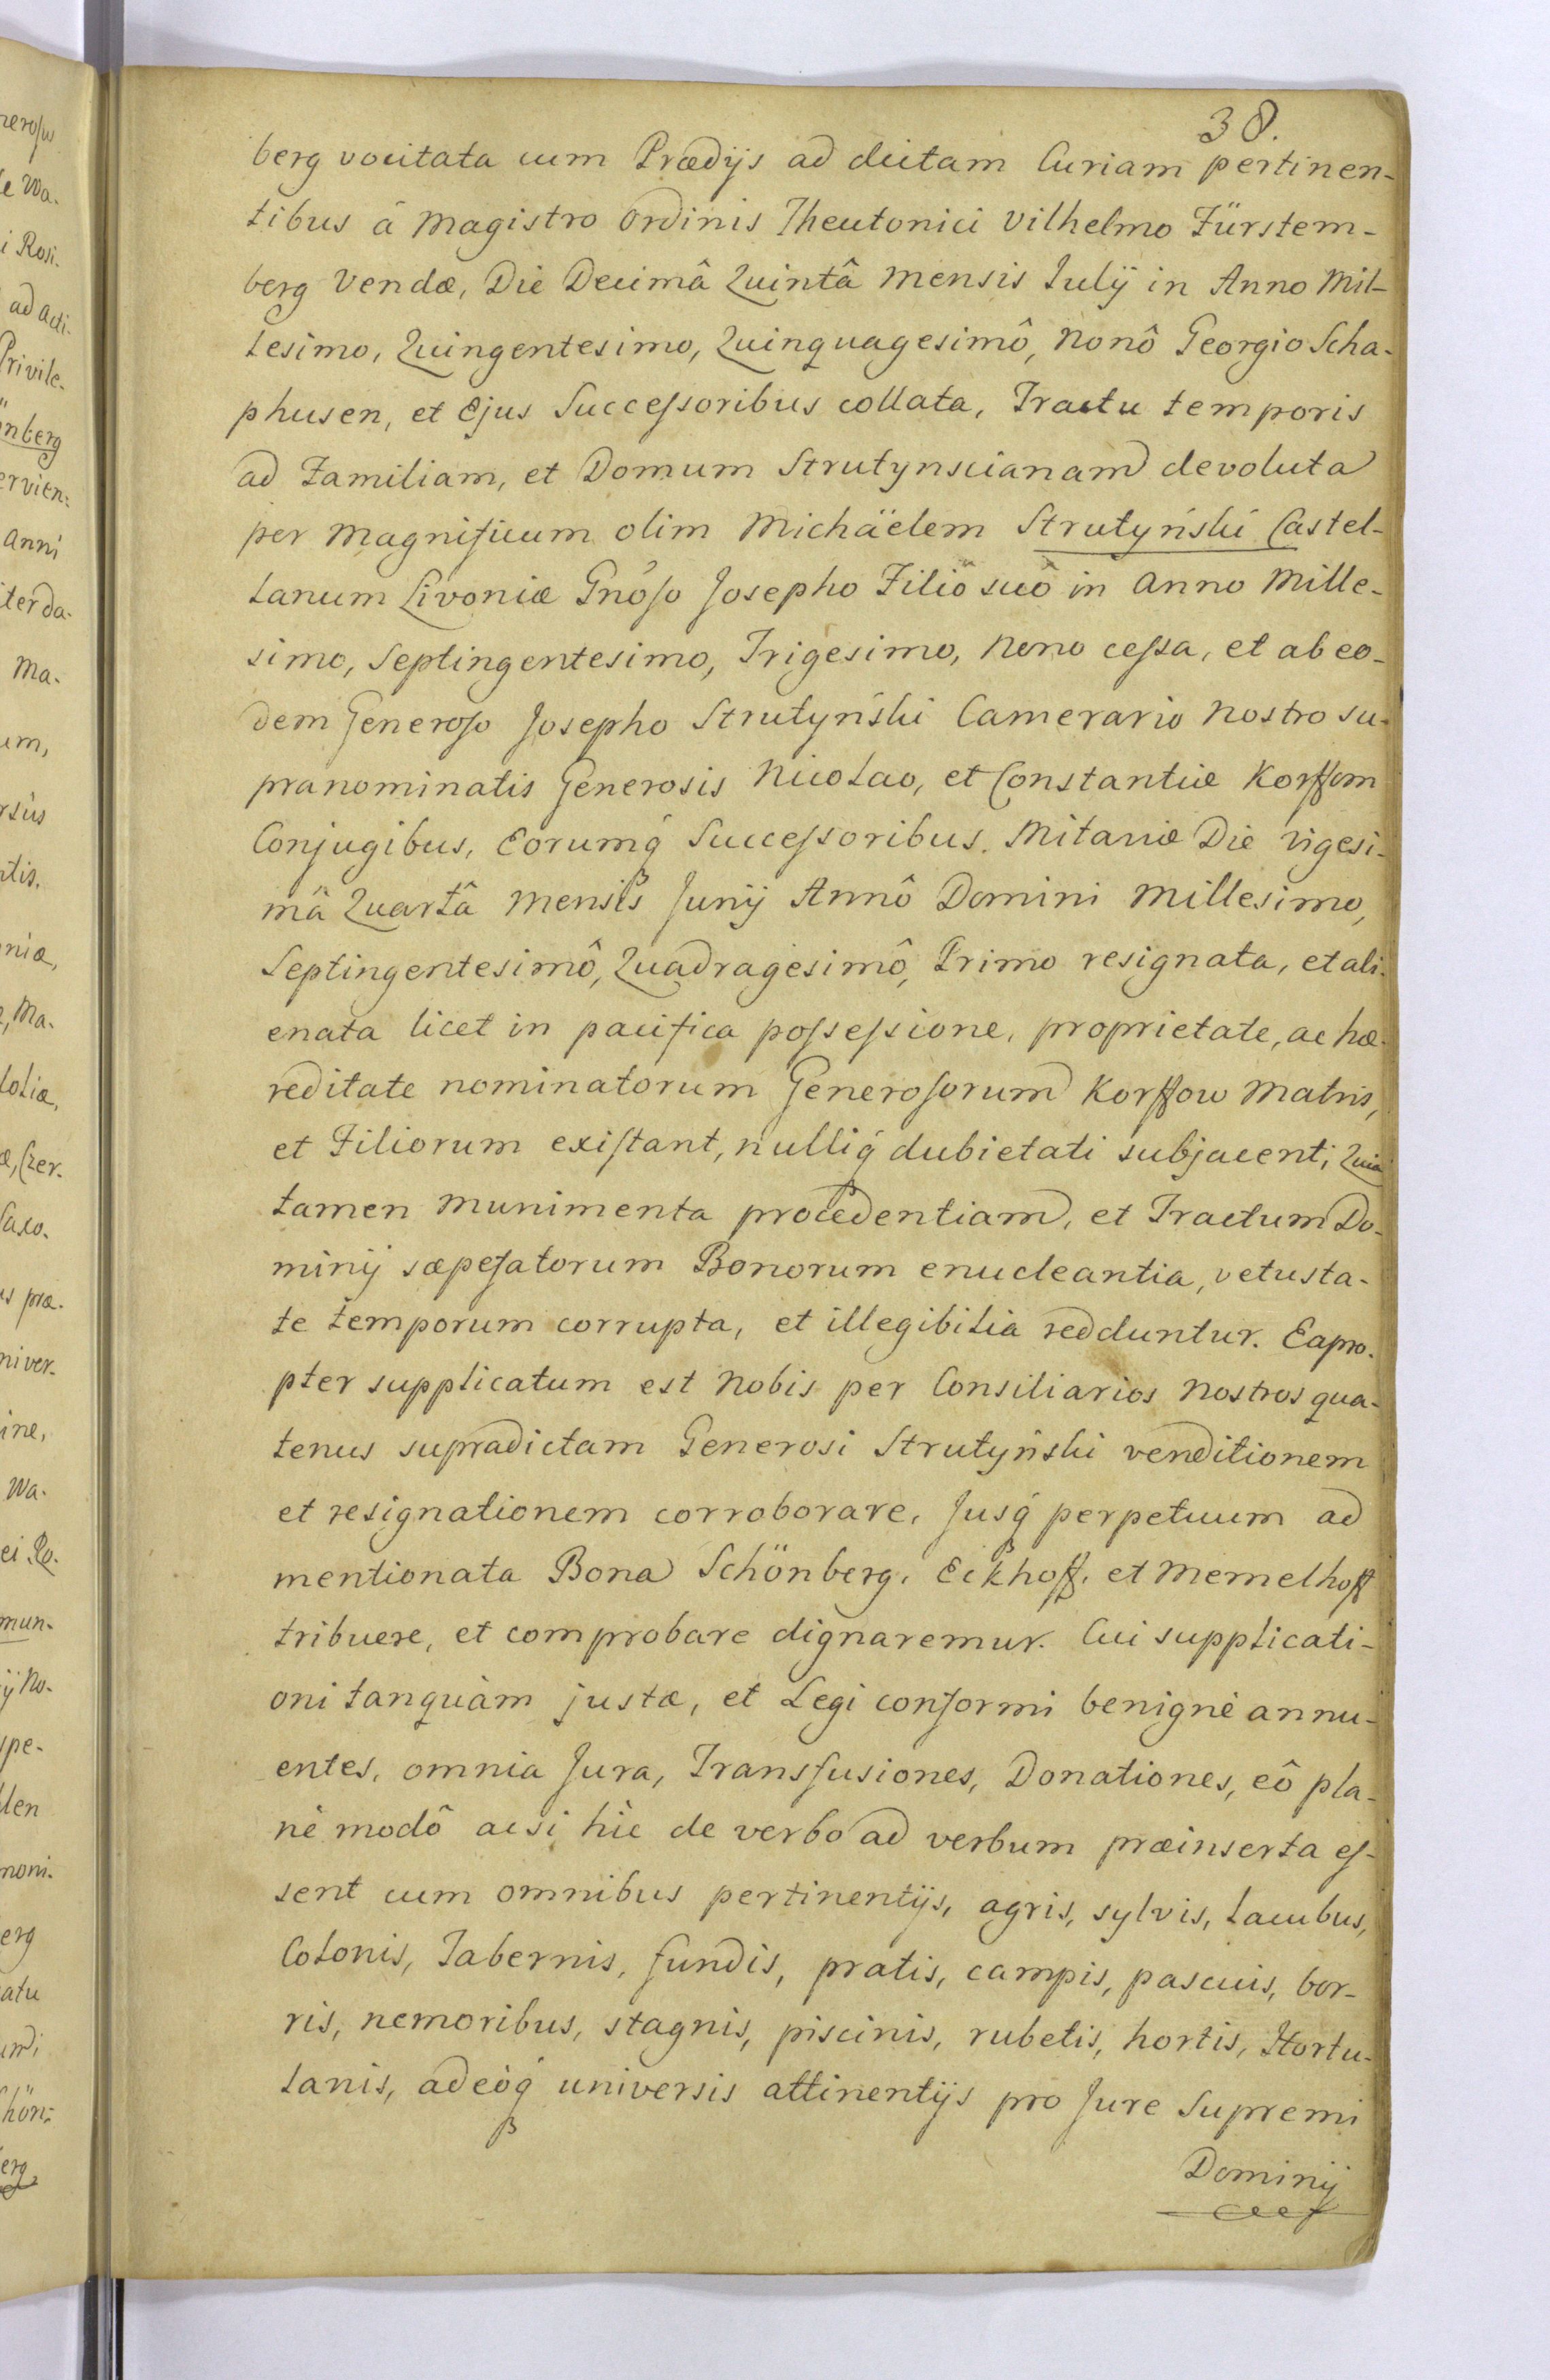 38.
berg vocitata cum Prædijs ad dictam Curiam pertinen-
tibus â Magistro Ordinis Theutonici Vilhelmo Fürstem-
berg Vendæ, Die Decimâ Quintâ Mensis Julÿ in Anno Mil-
lesimo, Quingentesimo, Quinquagesimô, Nonô Georgio Scha-
phusen, et Ejus Succeſsoribus collata, Tractu temporis
ad Familiam, et Domum Strutynscianam devoluta
per Magnificum olim Michäelem Strutyński Castel-
lanum Livoniæ Gnôſo Josepho Filiô suô in Anno Mille-
simo, Septingentesimo, Trigesimo, Nono ceſsa, et ab eo-
dem Generoſo Josepho Strutyński Camerario Nostro su-
pranominatis Generosis Nicolao, et Constantiæ Korffom
Conjugibus, Eorumq́ Succeſsoribus. Mitaviæ Die vigesi-
mâ Quartâ Mensis Junÿ Annô Domini Millesimo,
Septingentesimô, Quadragesimô, Primo resignata, et ali-
enata licet in pacifica poſseſsione, proprietate, ac hæ-
reditate nominatorum Generoſorum Korffow Matris,
et Filiorum exiſtant, nulliq́ dubietati subjacent; Quia
tamen Munimenta procedentiam, et Tractum Do-
minÿ sæpeſatorum Bonorum enucleantia, vetusta-
te temporum corrupta, et illegibilia redduntur. Eapro-
pter supplicatum est Nobis per Consiliarios Nostros qua-
tenus supradictam Generosi Strutyński venditionem
et resignationem corroborare, Jusq́ perpetuum ad
mentionata Bona Schönberg, Eckhoff, et Memelhoff
tribuere, et comprobare dignaremur. Cui supplicati-
oni tanquàm justæ, et Legi conformi benignè annu-
entes, omnia Jura, Transfusiones, Donationes, eô pla-
nè modô ac si hîc de verbo ad verbum præinserta eſ-
sent cum omnibus pertinentijs, agris, sylvis, lacubus,
Colonis, Tabernis, fundis, pratis, campis, pascuis, bor-
ris, nemoribus, stagnis, piscinis, rubetis, hortis, Hortu-
lanis, adeòq́ universis attinentijs pro Jure Supremi
Dominÿ